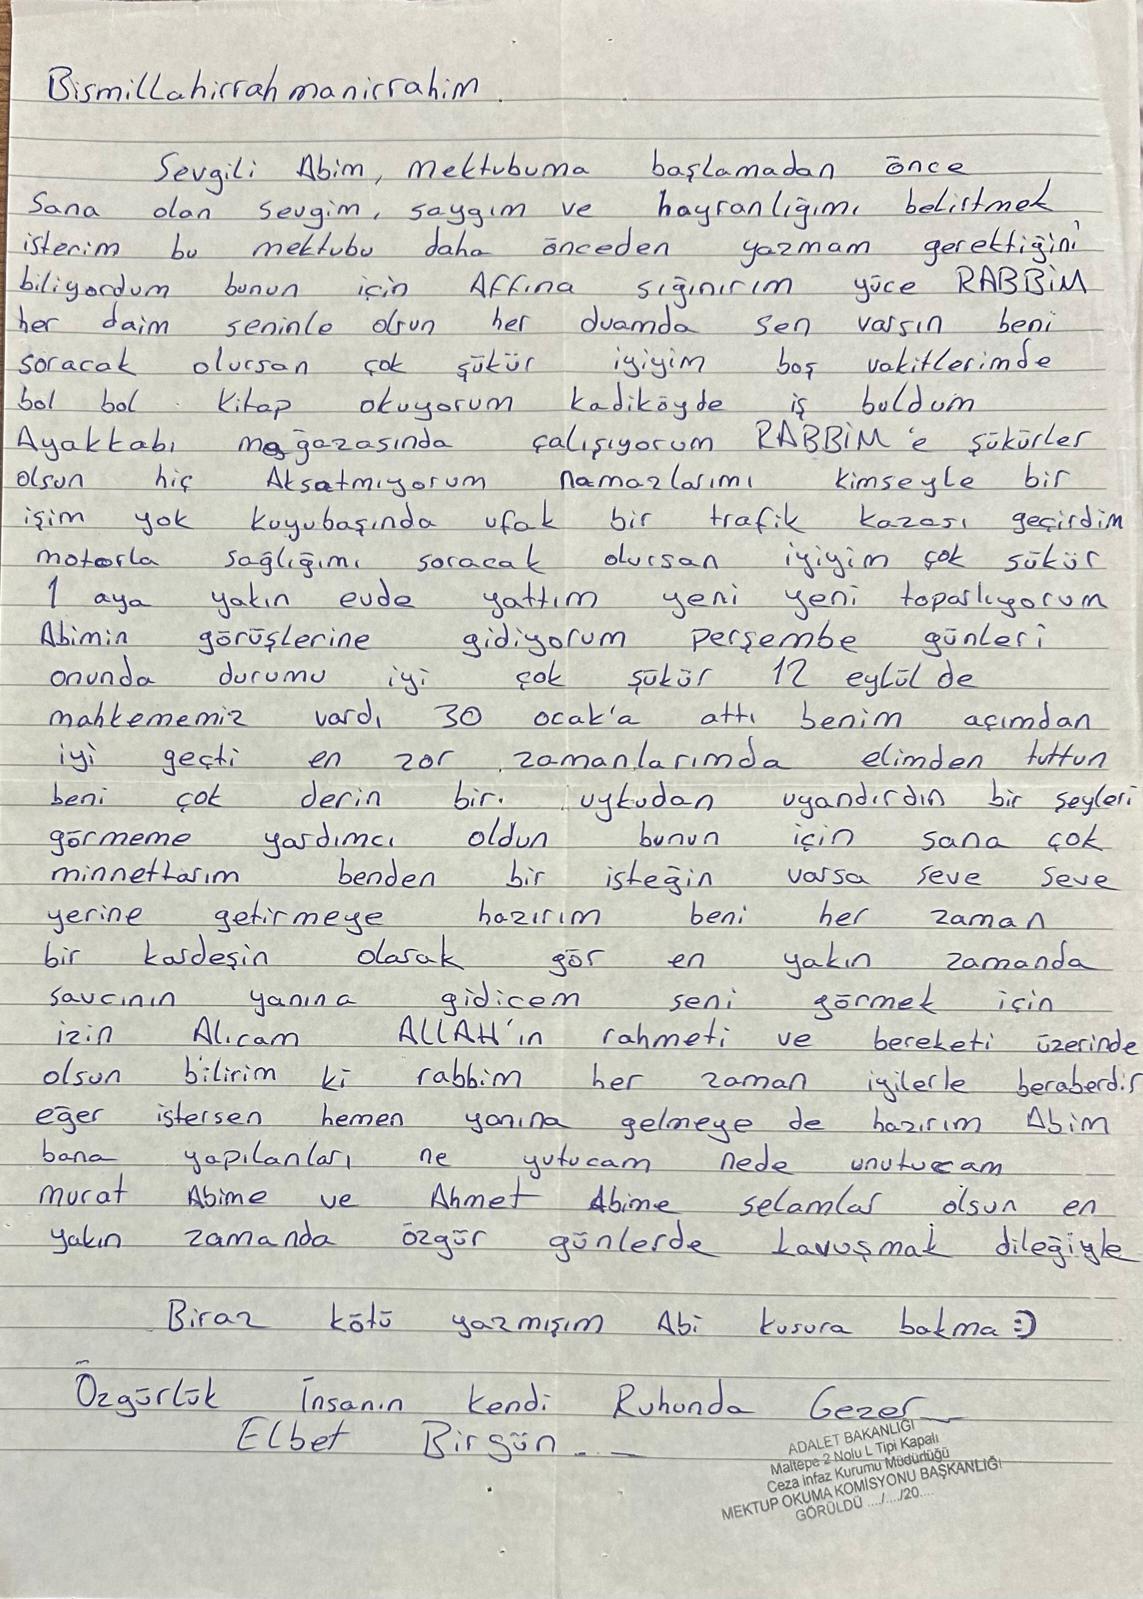 Bismillahirrahmanirrahim.
Sevgili Abim, mektubuma başlamadan önce
Sana olan sevgim, saygım ve hayranlığımı belirtmek
isterim bu mektubu daha önceden yazmam gerektiğini
biliyordum bunun için Affına sığınırım yüce RABBİM
her daim seninle olsun her duamda sen varsın beni
soracak olursan çok şükür iyiyim boş vakitlerimde
bol bol kitap okuyorum kadıköyde iş buldum
Ayakkabı mağazasında çalışıyorum RABBİM'e şükürler
olsun hiç Aksatmıyorum namazlarımı kimseyle bir
işim yok kuyubaşında ufak bir trafik kazası geçirdim
motorla sağlığımı soracak olursan iyiyim çok şükür
1 aya yakın evde yattım yeni yeni toparlıyorum
Abimin görüşlerine gidiyorum perşembe günleri
onunda durumu iyi çok şükür 12 eylül de
mahkememiz vardı 30 ocak'a attı benim açımdan
iyi geçti en zor zamanlarımda elimden tuttun
beni çok derin bir uykudan uyandırdın bir şeyleri
görmeme yardımcı oldun bunun için sana çok
minnettarım benden bir isteğin varsa seve seve
yerine getirmeye hazırım beni her zaman
bir kardeşin olarak gör en yakın zamanda
savcının yanına gidicem seni görmek için
izin Alıcam ALLAH'ın rahmeti ve bereketi üzerinde
olsun bilirim ki rabbim her zaman iyilerle beraberdir
eğer istersen hemen yanına gelmeye de hazırım Abim
bana yapılanları ne yutucam nede unutucam
murat Abime ve Ahmet Abime selamlar olsun en
yakın zamanda özgür günlerde kavuşmak dileğiyle
Biraz kötü yazmışım Abi kusura bakma :)
Özgürlük İnsanın Kendi Ruhunda Gezer
Elbet Birgün...
ADALET BAKANLIĞI
Maltepe 2 Nolu L Tipi Kapalı
Ceza İnfaz Kurumu Müdürlüğü
MEKTUP OKUMA KOMİSYONU BAŞKANLIĞI
GÖRÜLDÜ ..../..../20....